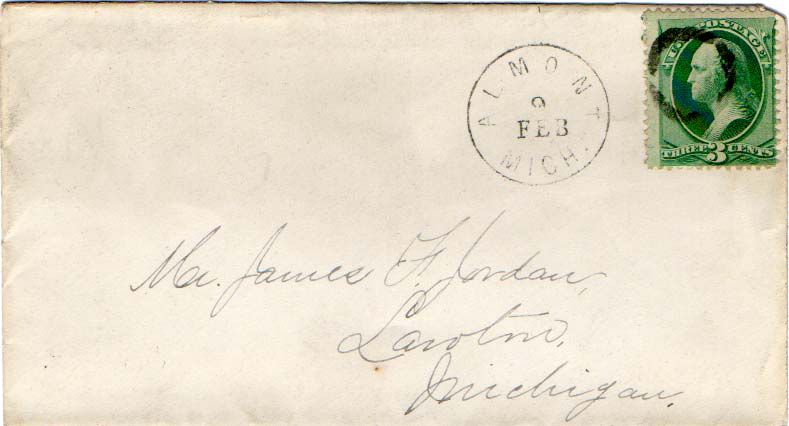 ALMONT
9
FEB
MICH.
U.S. POSTAGE
THREE 3 CENTS
Mr. James F. Jordan,
Lawton,
Michigan.